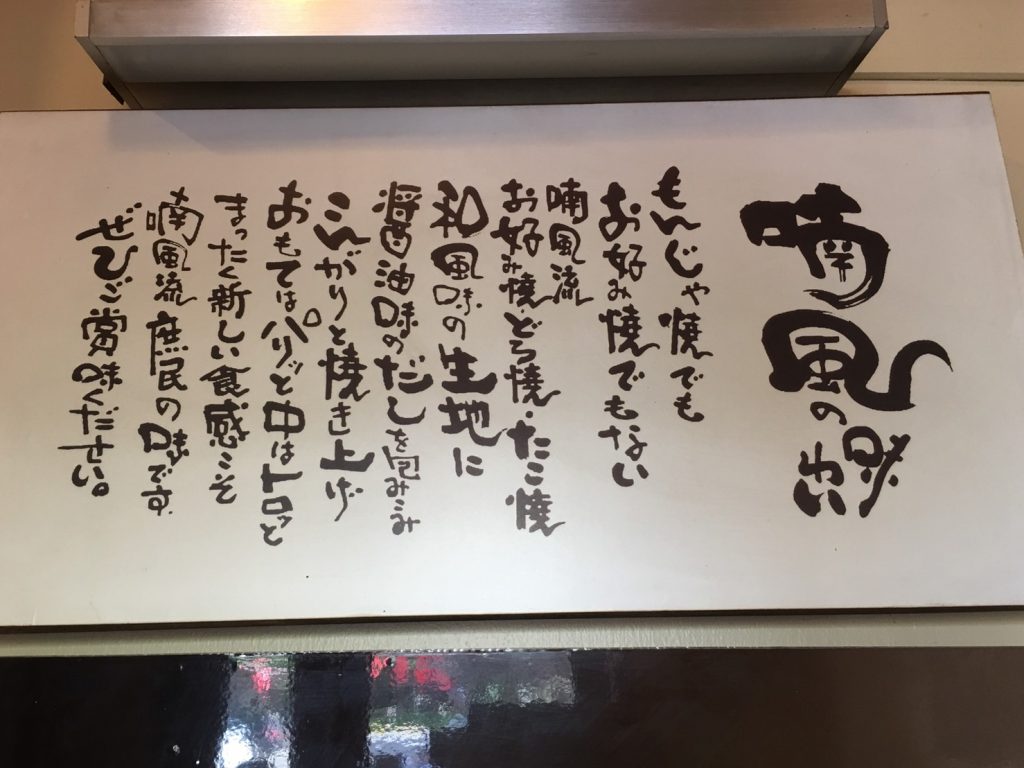 喃風の味わい
もんじゃ焼でも
お好み焼でもない
喃風流
お好み焼・どろ焼・たこ焼
和風味の生地に
醤油味のだしを包みこみ
こんがりと焼き上げ
おもてはパリッと中はトロッと
まったく新しい食感こそ
喃風流 庶民の味です。
ぜひご賞味ください。